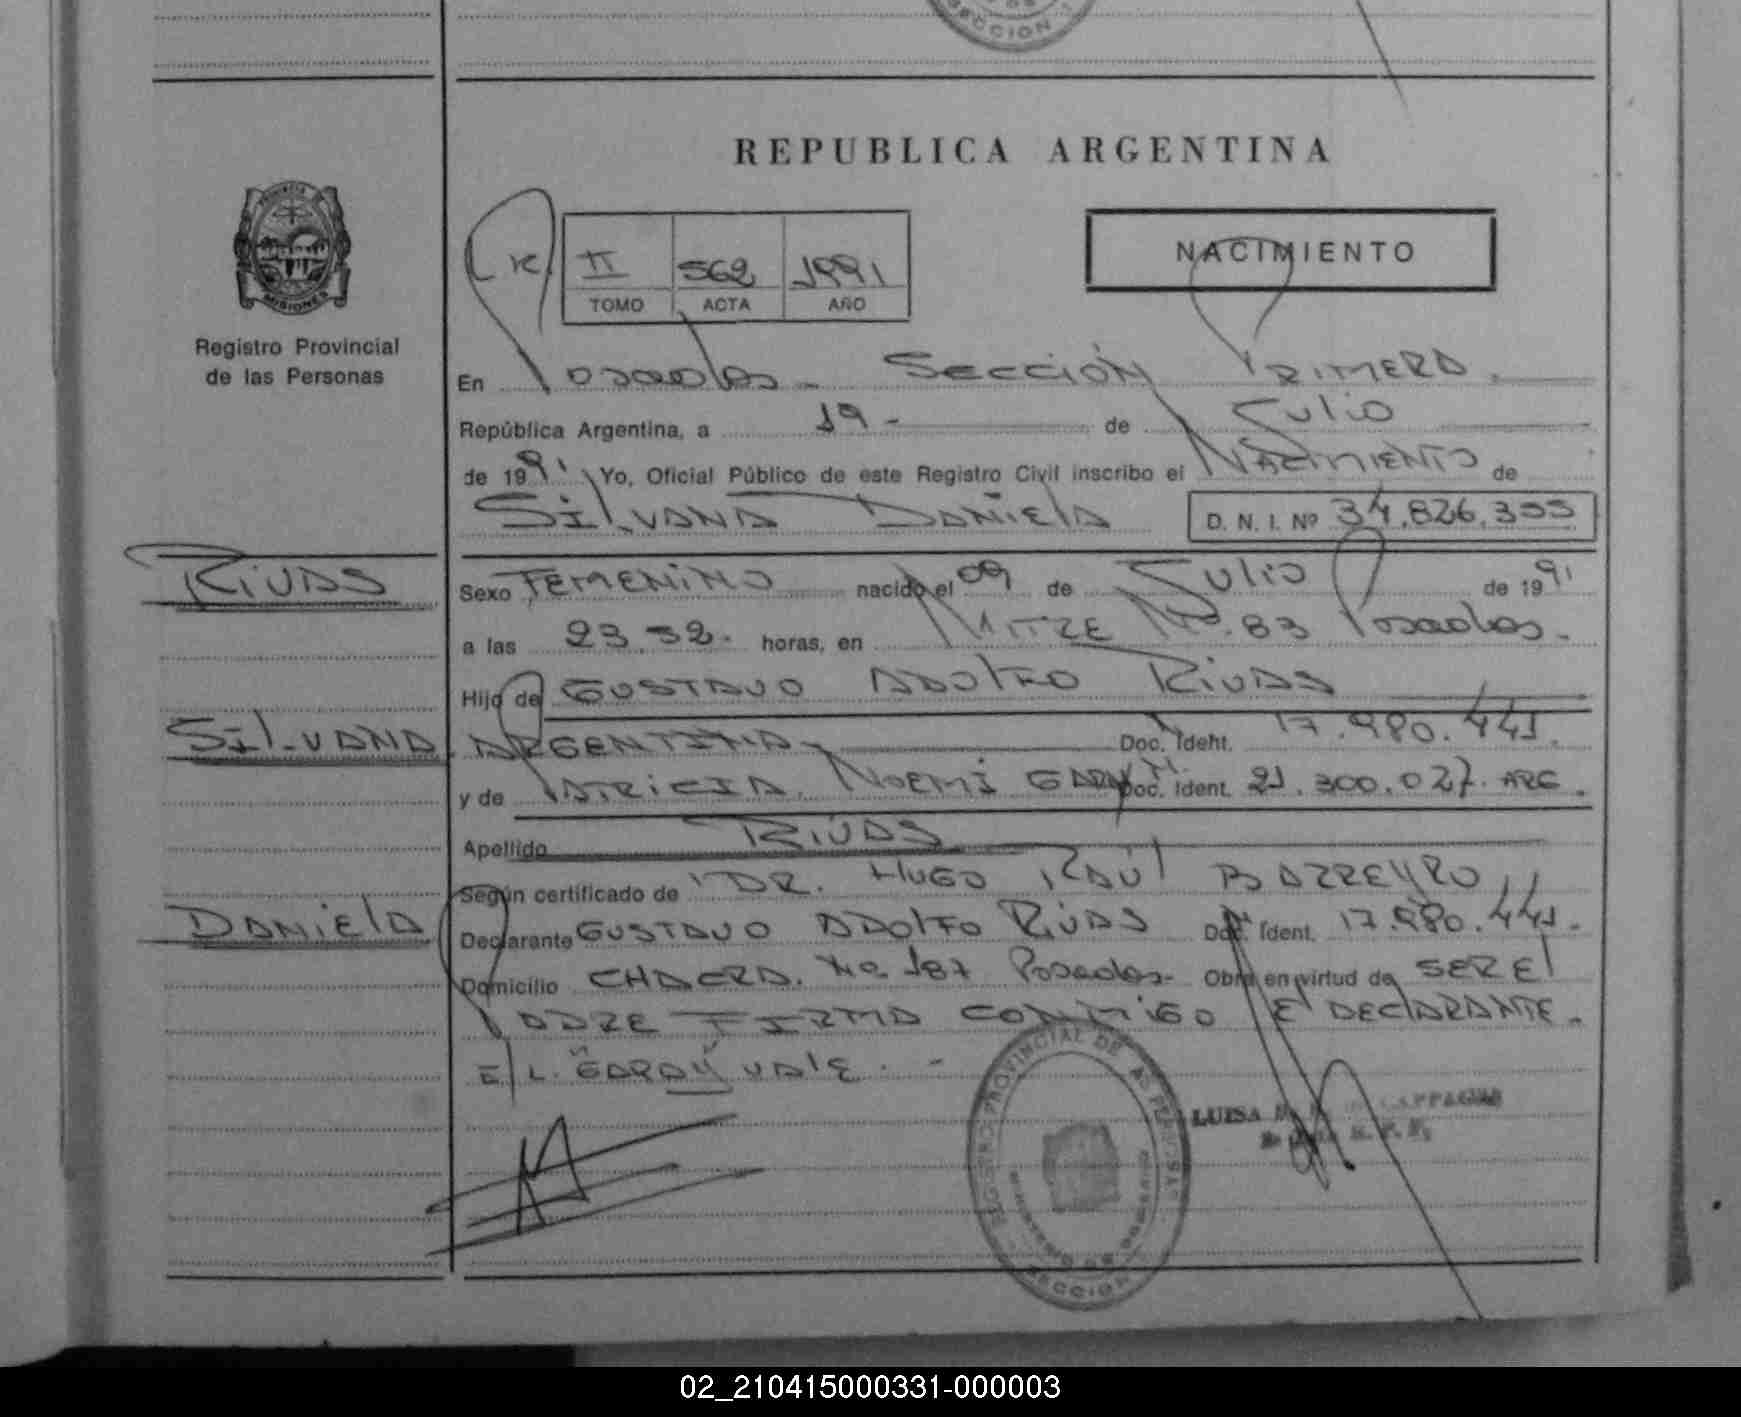 SECCION 1
REPUBLICA ARGENTINA
NACIMIENTO
II 562 1991
TOMO ACTA AÑO
PROVINCIA
MISIONES
Registro Provincial
de las Personas
En Posadas - Sección Primera.
República Argentina, a 19 - de Julio
de 1991 Yo, Oficial Público de este Registro Civil inscribo el Nacimiento de
Silvana Daniela D. N. I. Nº 34.826.355
Rivas
Sexo Femenino nacido el 09 de Julio de 1991
a las 23.52. horas, en Mitre Nº. 83 Posadas.-
Hijo de Gustavo Adolfo Rivas
Silvana
Argentina - Doc. Ident. 17.980.441.
y de Patricia Noemí Garay Doc. Ident. 21.300.027. ARG.
Apellido Rivas
Según certificado de DR. Hugo Raúl Barreyro
Daniela
Declarante Gustavo Adolfo Rivas Doc. Ident. 17.980.441.
Domicilio Chacra. Nº 187 Posadas- Obra en virtud de ser el
Padre Firma conmigo el declarante.
E/L. "Garay" vale. -
REGISTRO PROVINCIAL DE LAS PERSONAS
MINISTERIO DE GOBIERNO
SECCION 1
LUISA
02_210415000331-000003